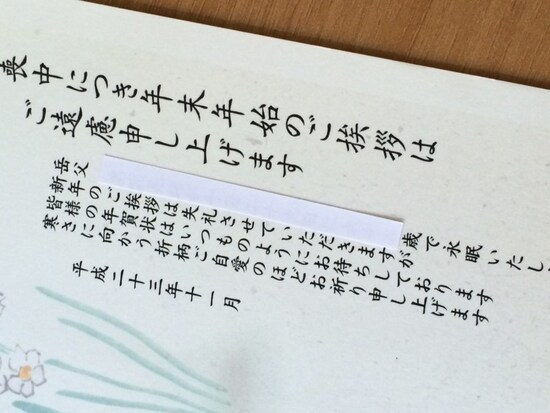 喪中につき年末年始のご挨拶は
ご遠慮申し上げます
岳父 歳で永眠いたし
新年のご挨拶は失礼させていただきますが
皆様の年賀状はいつものようにお待ちしております
寒さに向かう折柄ご自愛のほどお祈り申し上げます
平成二十三年十一月